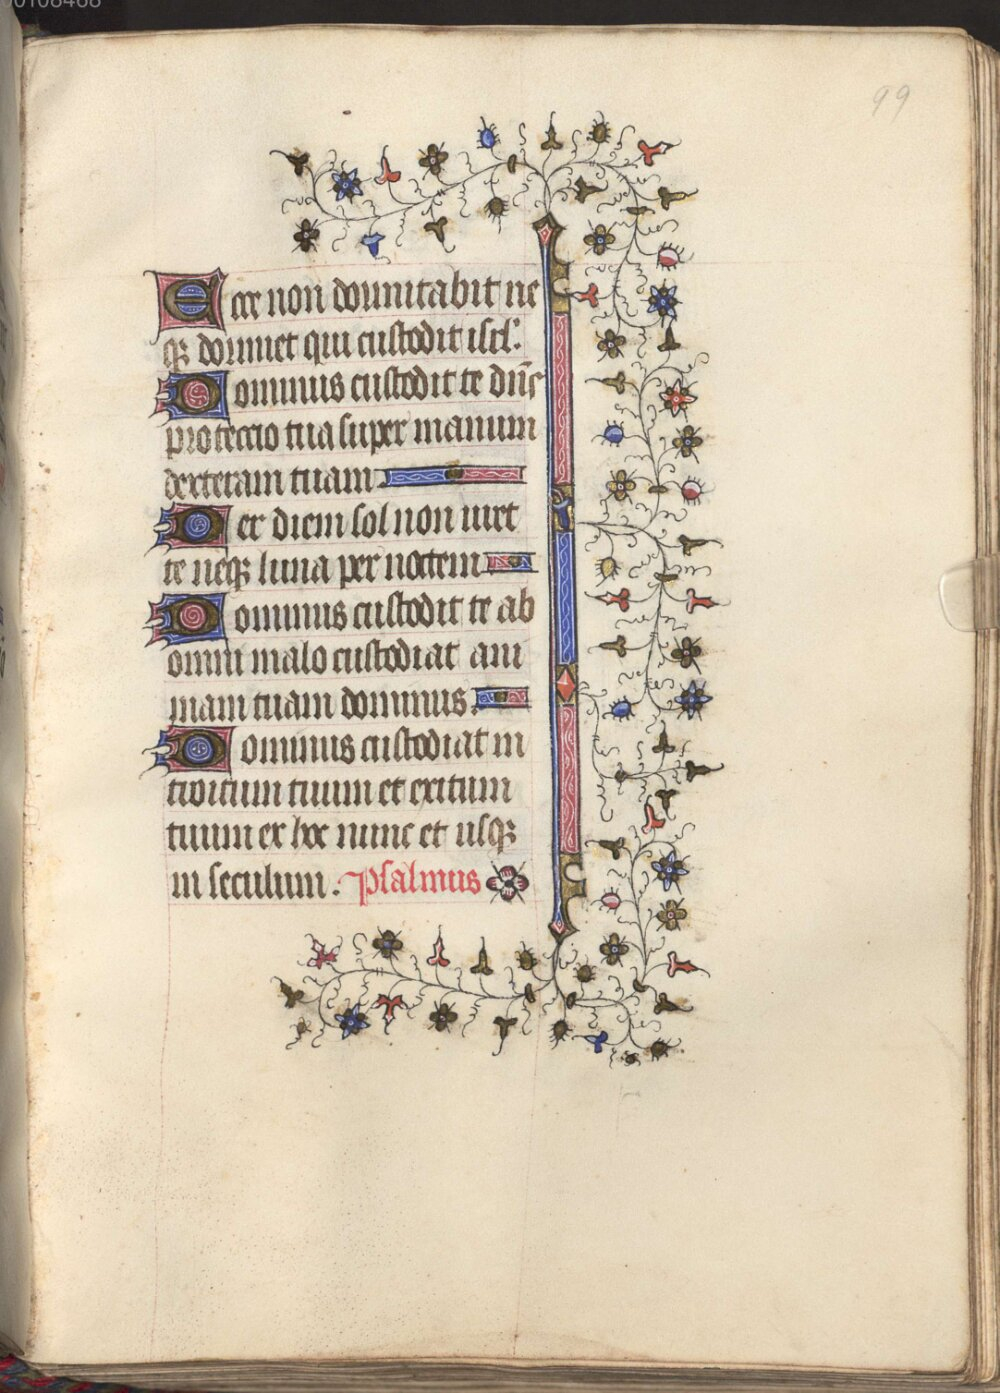 00108468
99
Ecce non dormitabit ne
qꝫ dormiet qui custodit isrl̃.
Dominus custodit te dñs
protectio tua super manum
dexteram tuam.
Per diem sol non uret
te neqꝫ luna per noctem
Dominus custodit te ab
omni malo custodiat ani
mam tuam dominus.
Dominus custodiat in
troitum tuum et exitum
tuum ex hoc nunc et usqꝫ
in seculum. Psalmus